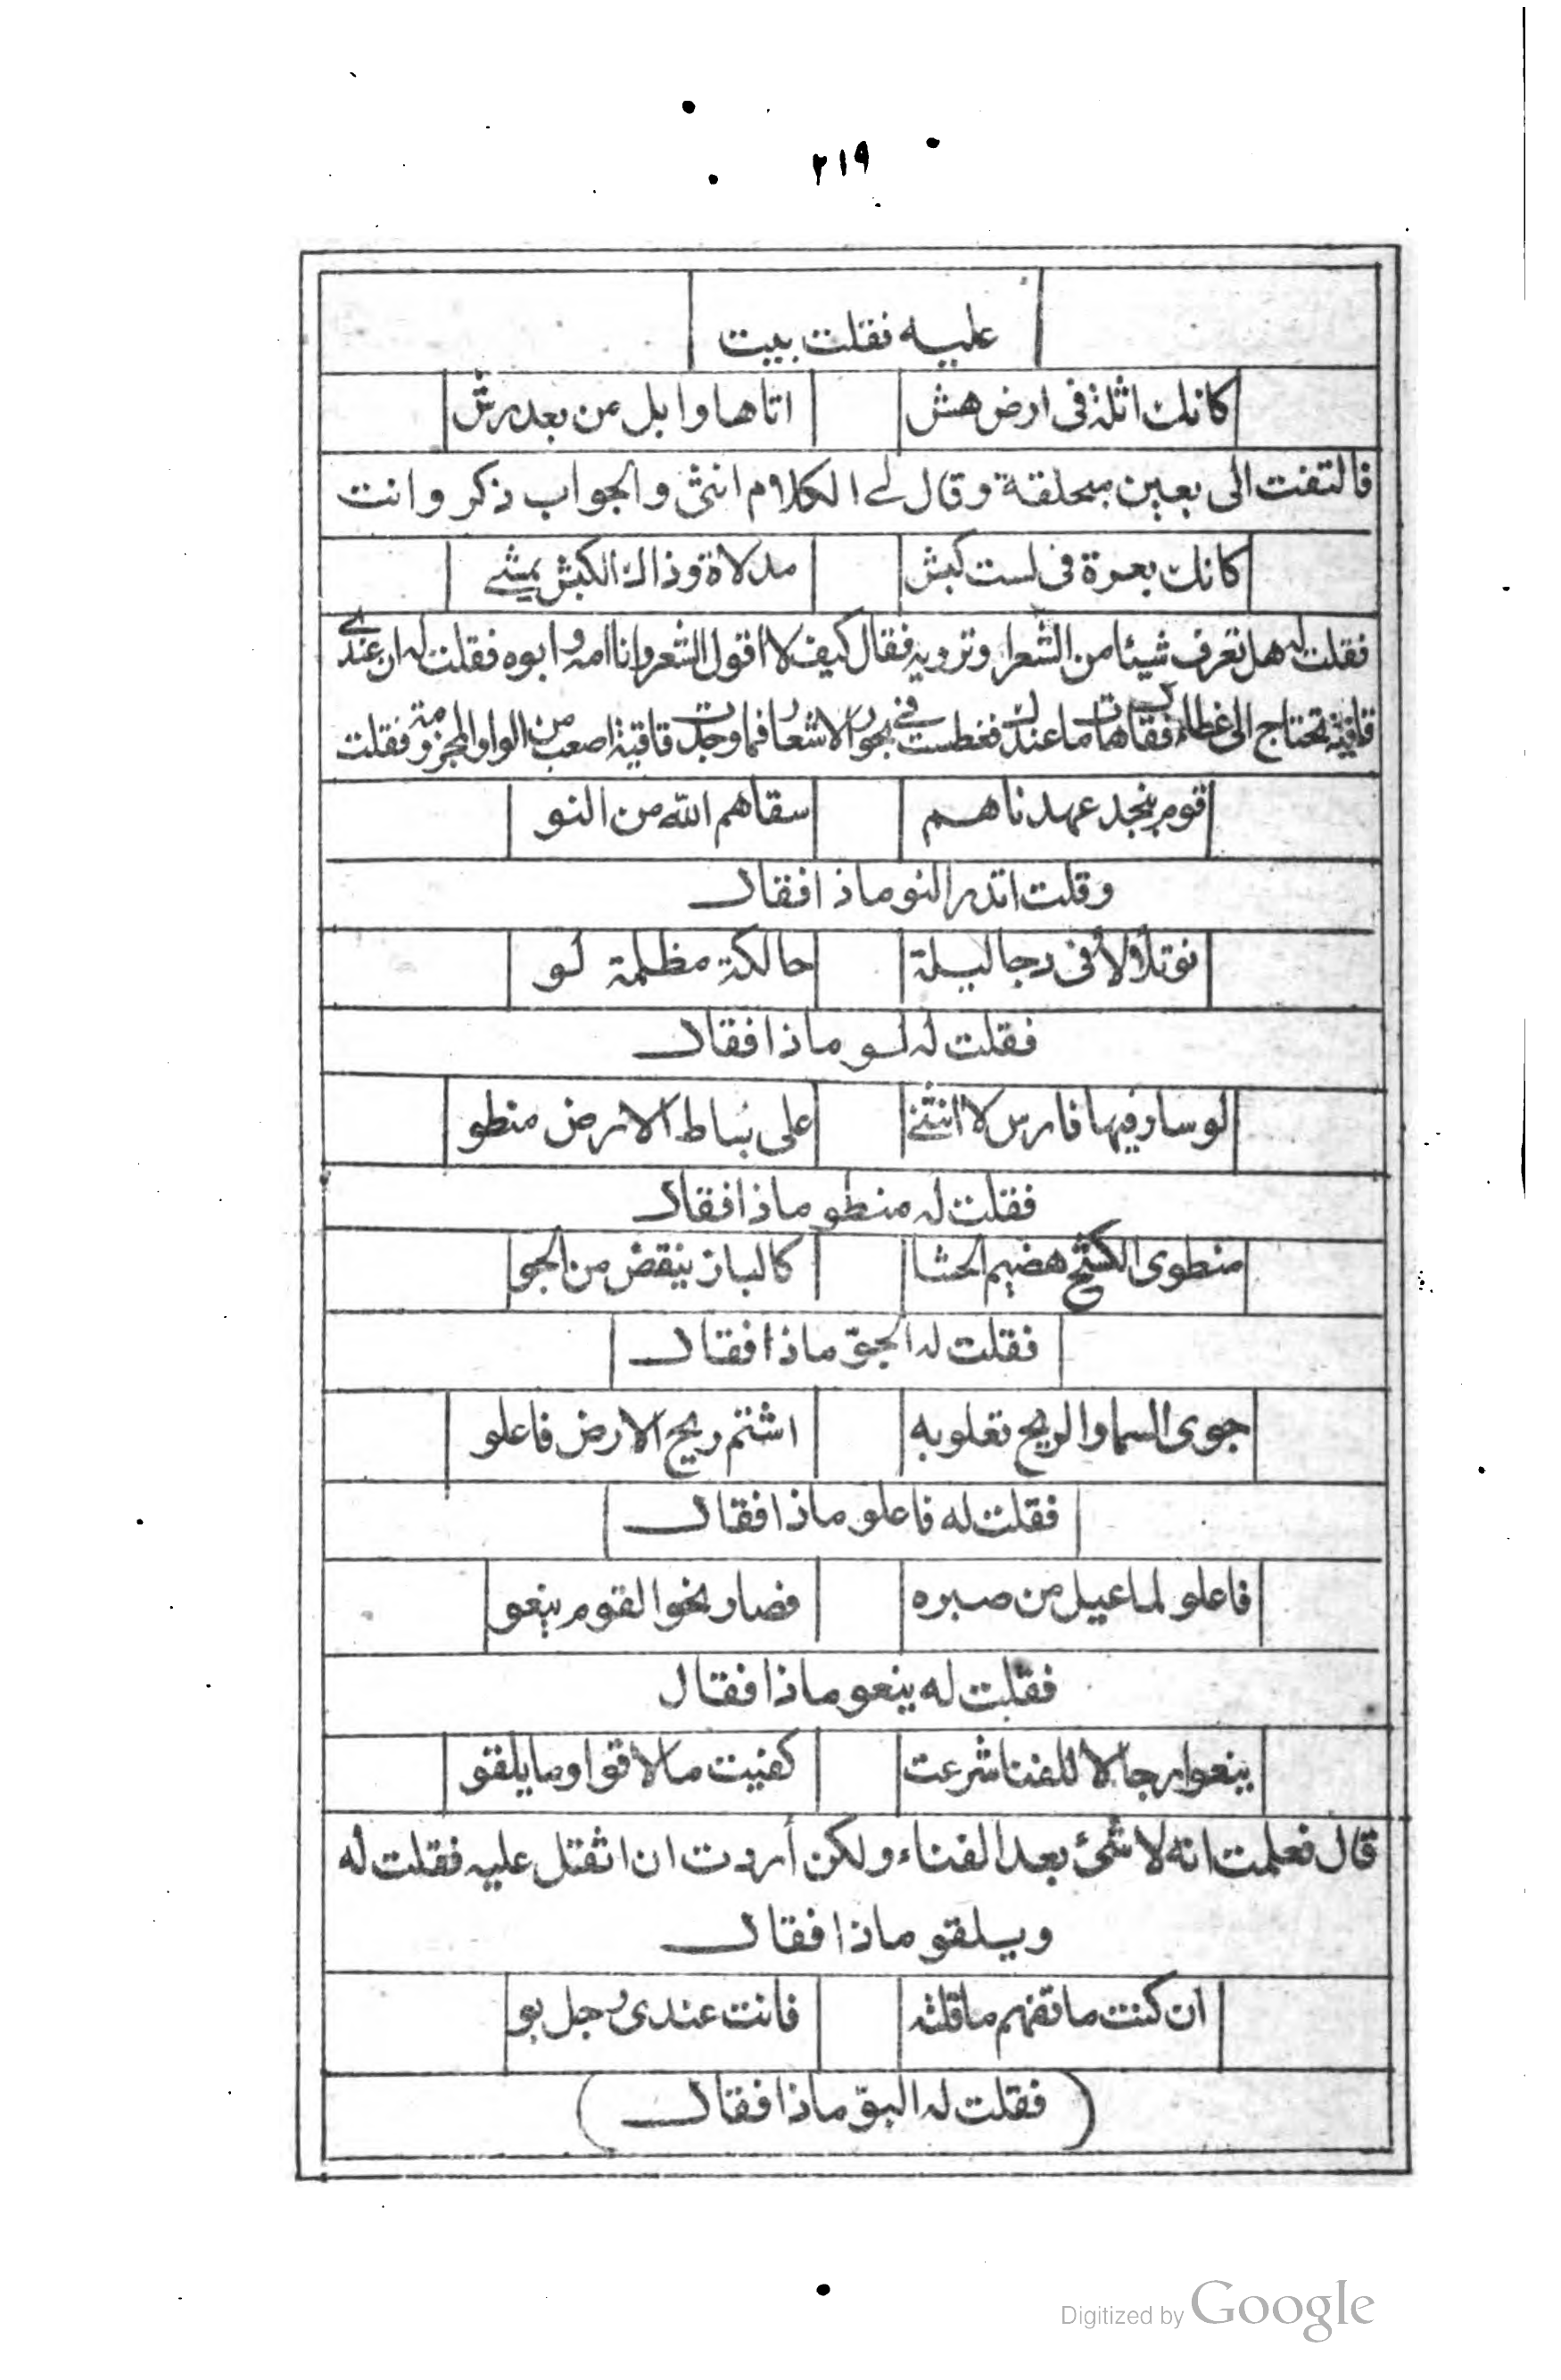 ٢١٩
عليه فقلت بيت
كانك اثلة فى ارض هش اتاها وابل من بعد رش
فالتفت الى بعين مبحلقة وقال لى الكلام انثى والجواب ذكر وانت
كانك بعرة فى است كبش مدلاة وذاك الكبش يمشى
فقلت له هل تعرف شيئا من الشعر او ترويه فقال كيف لا اقول الشعر وانا امه وابوه فقلت له ان عندى
قافية تحتاج الى غطا فقال هات ما عندك فغطست فى بحور الاشعار فما وجدت قافية اصعب من الواو المجزومة فقلت
قوم بنجد عهدناهم سقاهم الله من النو
وقلت اتدر النو ماذا فقال
نو تلألأ فى دجا ليلة حالكة مظلمة لو
فقلت له لو ماذا فقال
لو سار فيها فارس لاانثنى على بساط الارض منطو
فقلت له منطو ماذا فقال
منطوى الكشح هضيم الحشا كالباز ينقض من الجو
فقلت له الجوّ ماذا فقال
جوى السما والريح تعلو به اشتم ريح الارض فاعلو
فقلت له فاعلو ماذا فقال
فاعلو لما عيل من صبره فصار نحو القوم ينعو
فقلت له ينعو ماذا فقال
ينعو رجالا للفنا شرعت كفيت ما لاقوا وما يلقو
قال فعلمت انه لا شئ بعد الفناء ولكن أردت ان اثقل عليه فقلت له
ويلقو ماذا فقال
ان كنت ما تفهم ما قلته فانت عندى رجل بو
(فقلت له البوّ ماذا فقال)
Digitized by Google